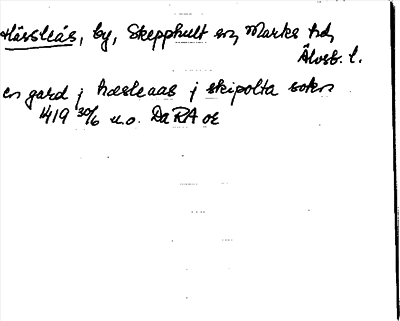 Hässleås, by, Skepphult sn, Marks hd,
Älvsb. l.
en gard j hæsleaas j skipolta sokn
1419 30/6 u.o. Da RA or